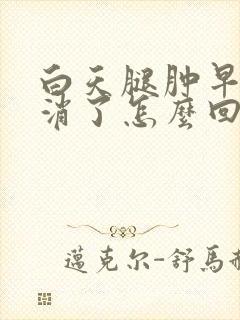 白天腿肿早
消了怎麼回
邁克尔-舒馬赫